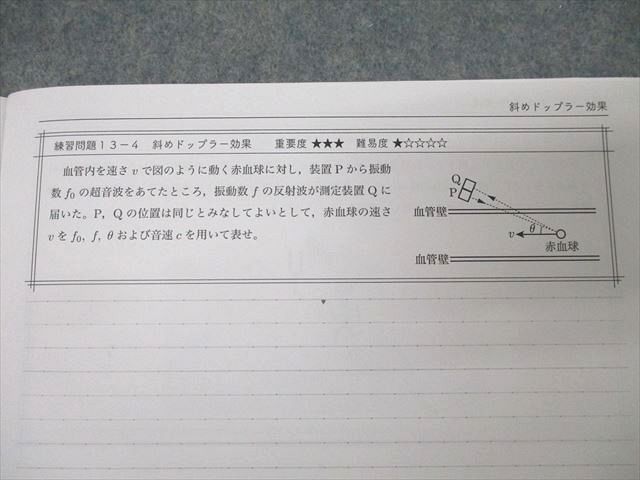 斜めドップラー効果
練習問題13-4 斜めドップラー効果 重要度 ★★★ 難易度 ★☆☆☆☆
血管内を速さ v で図のように動く赤血球に対し，装置 P から振動
数 f₀ の超音波をあてたところ，振動数 f の反射波が測定装置 Q に
届いた。P，Q の位置は同じとみなしてよいとして，赤血球の速さ
v を f₀, f, θ および音速 c を用いて表せ。
Q
P
血管壁
v
θ
赤血球
血管壁